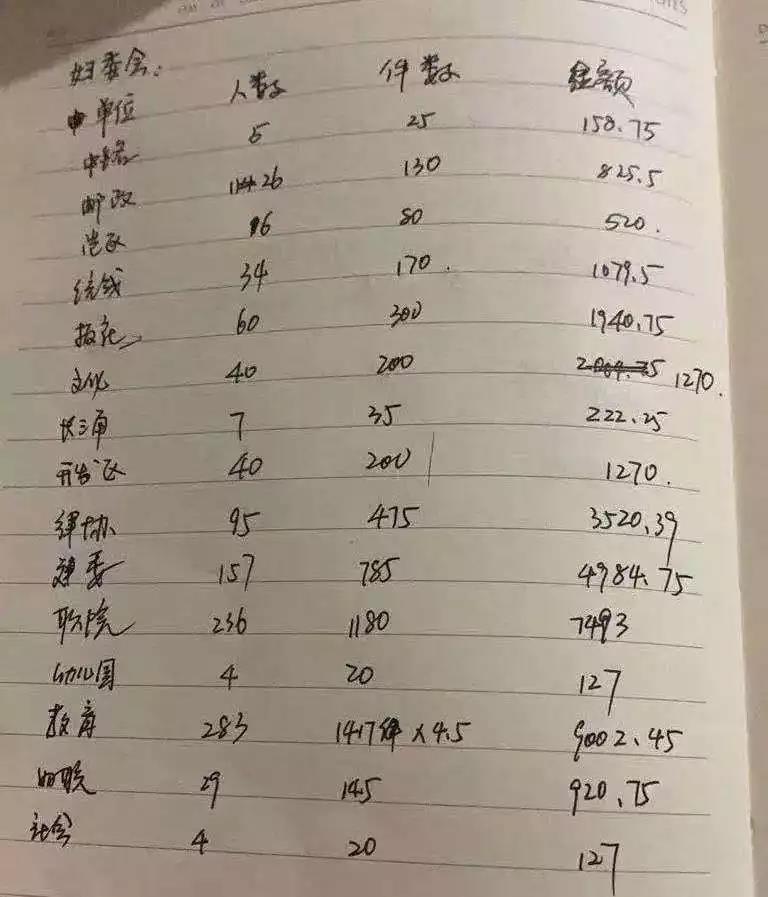 妇委会：
单位 人数 件数 金额
5 25 158.75
邮政 26 130 825.5
16 80 520.
统战 34 170. 1079.5
60 300 1940.75
文化 40 200 1270.
长三角 7 35 222.25
40 200 1270.
律协 95 475 3520.39
建委 157 785 4984.75
职院 236 1180 7493
幼儿园 4 20 127
教育 283 1417件×4.5 9002.45
妇联 29 145 920.75
社会 4 20 127